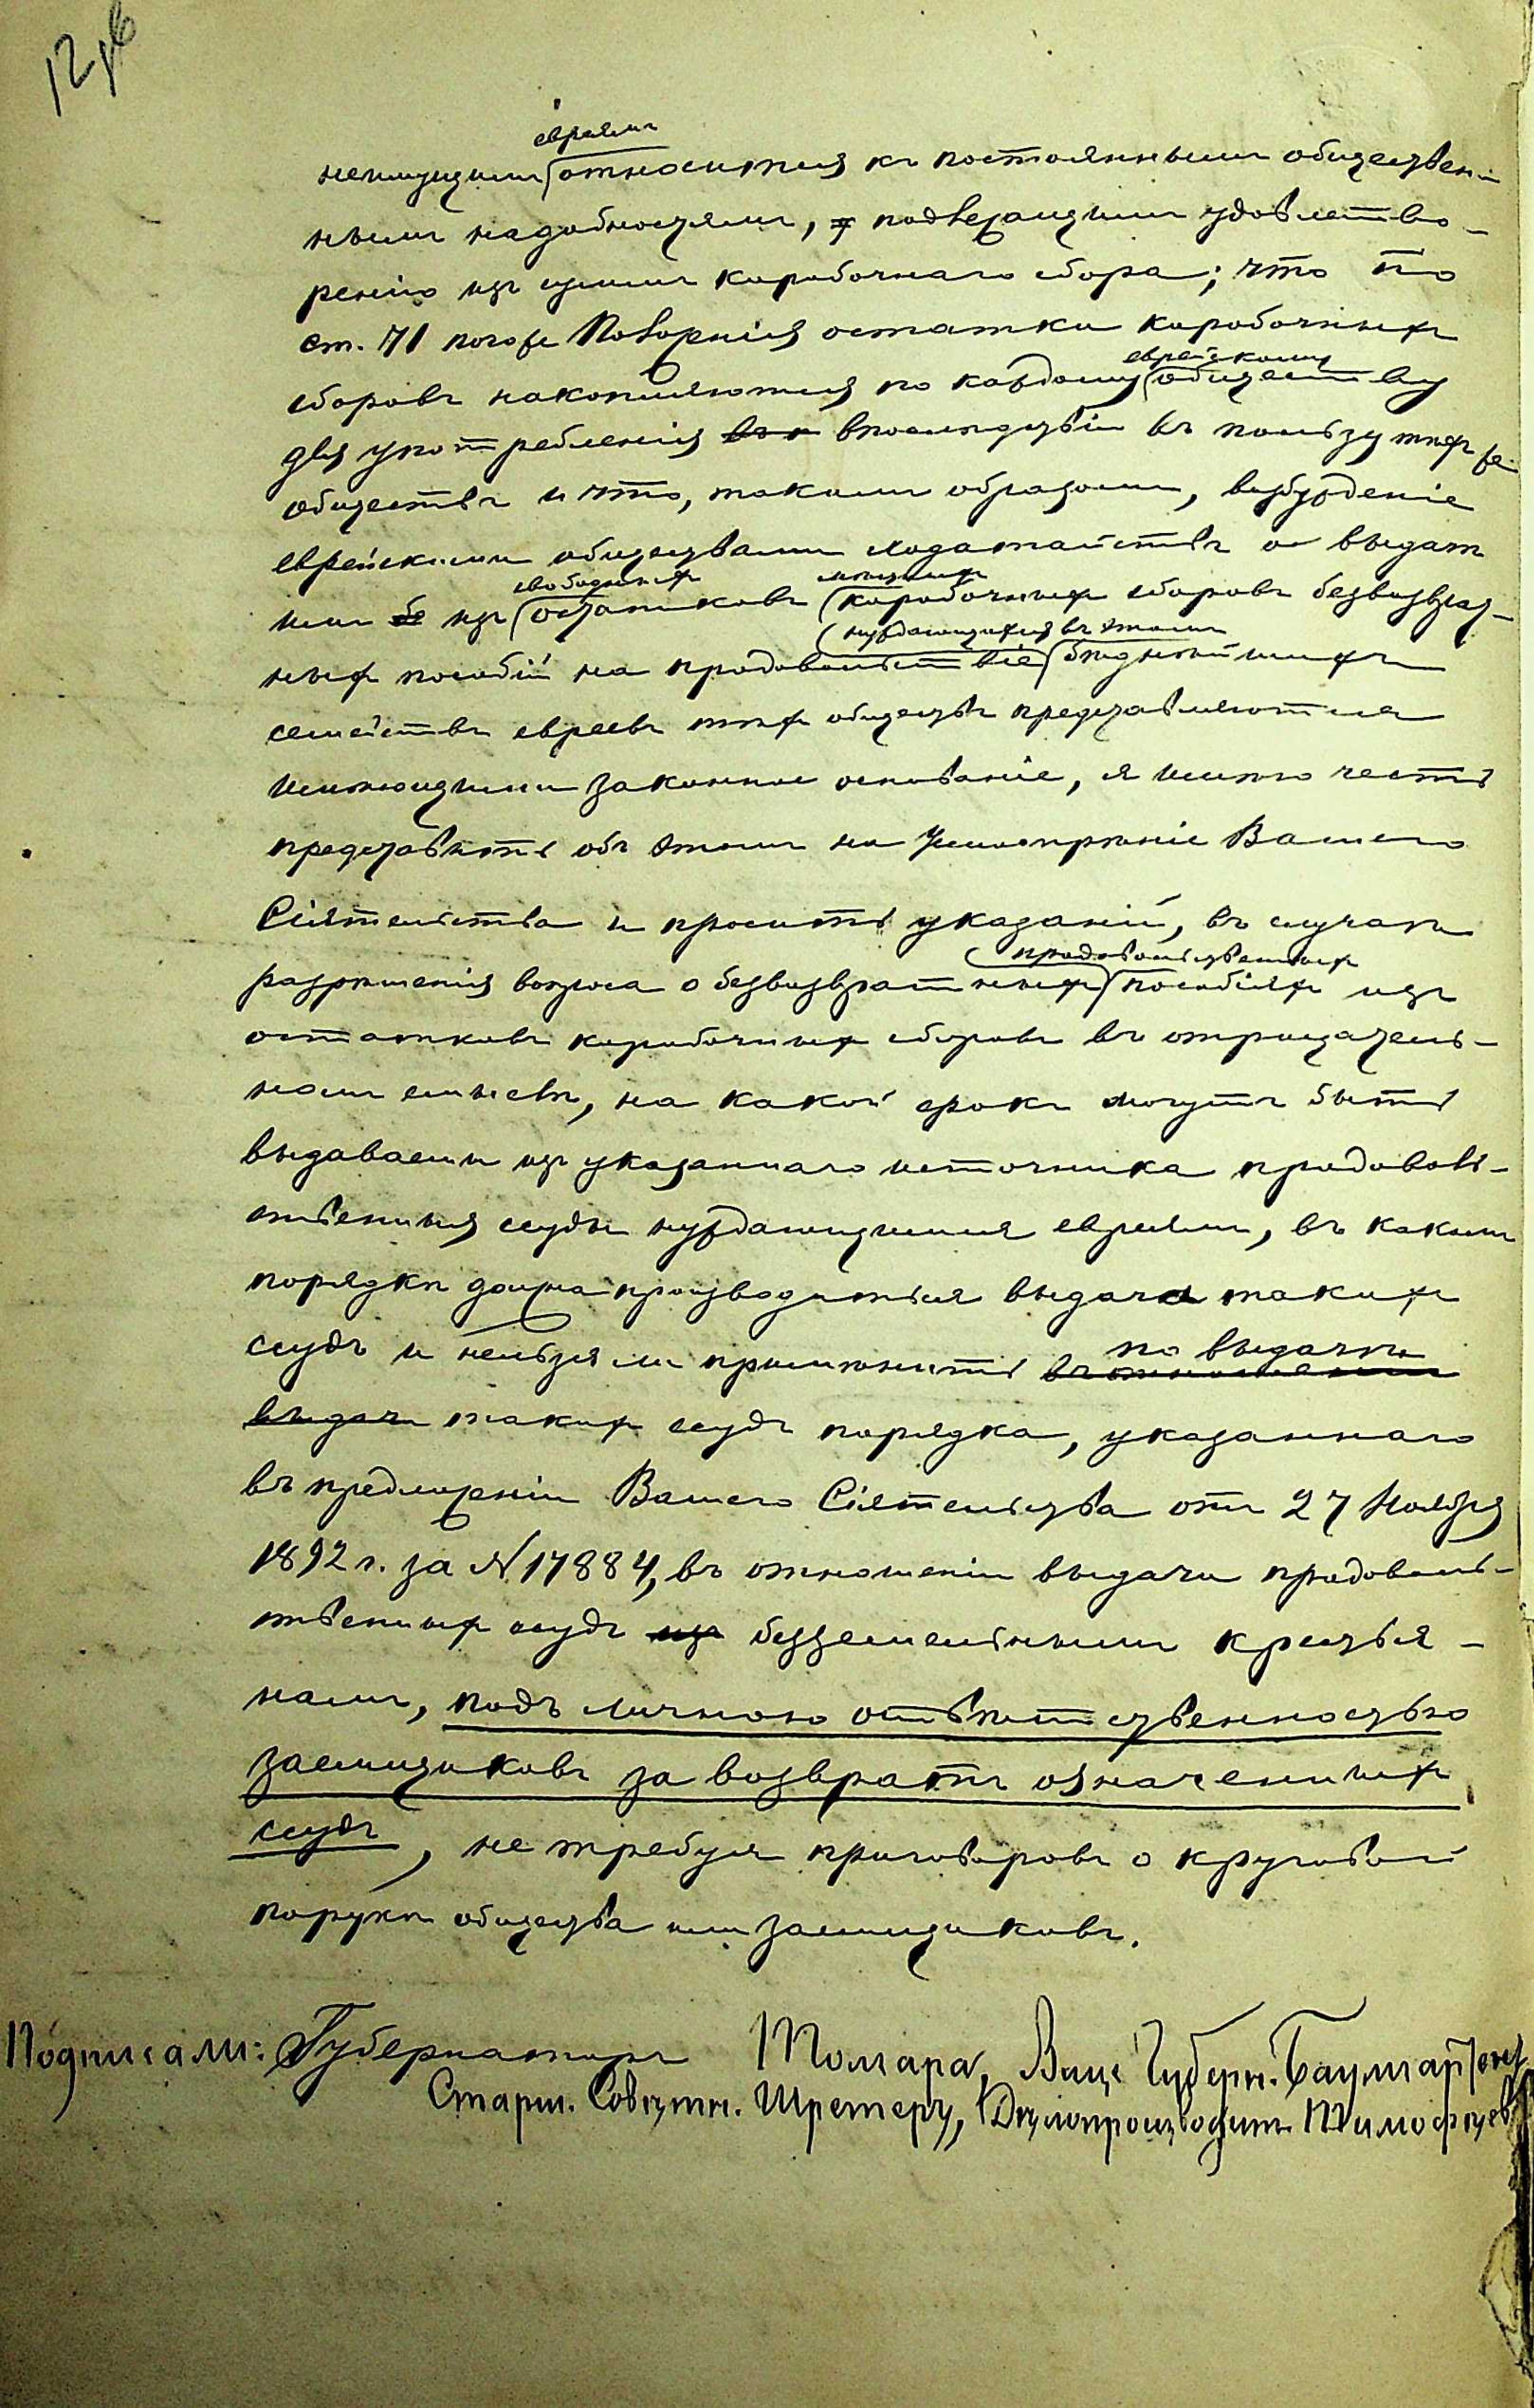 12 об
евреямъ
неимущимъ относится къ постояннымъ обществен-
нымъ надобностямъ, подлежащимъ удовлетво-
ренію изъ суммъ коробочнаго сбора; что по
ст. 71 того же Положенія остатки коробочныхъ
еврейскому
сборовъ накопляются по каждому обществу
для употребленія впослѣдствіи въ пользу тѣхъ же
обществъ и что, такимъ образомъ, возбужденіе
еврейскими обществами ходатайствъ о выдачѣ
свободныхъ мѣстныхъ
имъ изъ остатковъ коробочныхъ сборовъ безвозврат-
нуждающихся въ этомъ
ныхъ пособій на продовольствіе бѣднѣйшихъ
семействъ евреевъ тѣхъ обществъ представляются
имѣющими законное основаніе, я имѣю честь
представить объ этомъ на усмотрѣніе Вашего
Сіятельства и просить указаній, въ случаѣ
продовольственныхъ
разрѣшенія вопроса о безвозвратныхъ пособіяхъ изъ
остатковъ коробочныхъ сборовъ въ отрицатель-
номъ смыслѣ, на какой срокъ могутъ быть
выдаваемы изъ указаннаго источника продоволь-
ственныя ссуды нуждающимся евреямъ, въ какомъ
порядкѣ должна производиться выдача такихъ
по выдачѣ
ссудъ и нельзя ли примѣнить въ отношеніи
выдачи такихъ ссудъ порядка, указаннаго
въ предложеніи Вашего Сіятельства отъ 27 Ноября
1892 г. за № 17884, въ отношеніи выдачи продоволь-
ственныхъ ссудъ безземельнымъ крестья-
намъ, подъ личною отвѣтственностью
заемщиковъ за возвратъ означенныхъ
ссудъ, не требуя приговоровъ о круговой
порукѣ общества или заемщиковъ.
Подписали: Губернаторъ Томара, Вице Губерн. Баумгартенъ,
Старш. Совѣтн. Шретеръ, Дѣлопроизводит. Тимофѣевъ